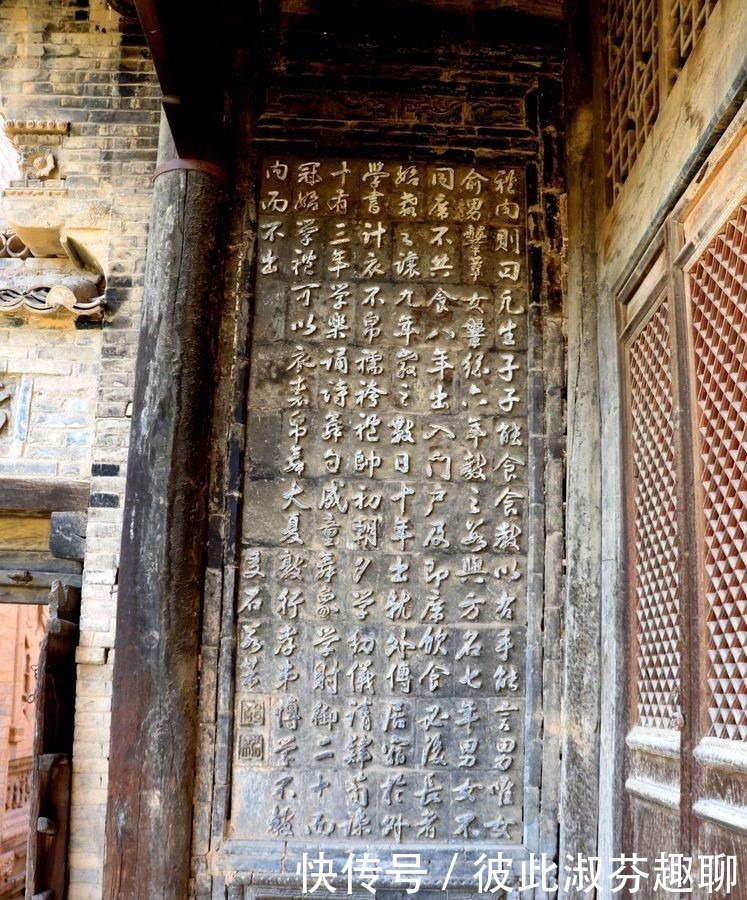 禮內則曰凡生子子能食食教以右手能言男唯女
俞男鞶革女鞶絲六年教之數與方名七年男女不
同席不共食八年出入門戶及即席飲食必後長者
始教之讓九年教之數日十年出就外傅居宿於外
學書計衣不帛襦袴禮帥初朝夕學幼儀請肄簡諒
十有三年學樂誦詩舞勺成童舞象學射御二十而
冠始學禮可以衣裘帛舞大夏敦行孝弟博學不教
內而不出
快传号 / 彼此淑芬趣聊